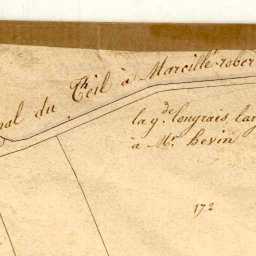 du Theil à Marcillé-rober
la g.de longrais, lar
à Mr. hevin
172